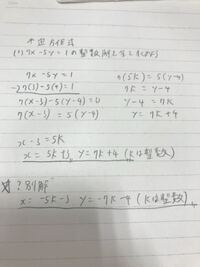 不定方程式
(1) 7x-5y=1の整数解を全て求めよ
7x-5y=1
-) 7(3)-5(4)=1
7(x-3)-5(y-4)=0
7(x-3)=5(y-4)
7(5k)=5(y-4)
7k=y-4
y-4=7k
y=7k+4
x-3=5k
x=5k+3 y=7k+4 (kは整数)
? 別解
x=-5k-3 y=-7k-4 (kは整数)